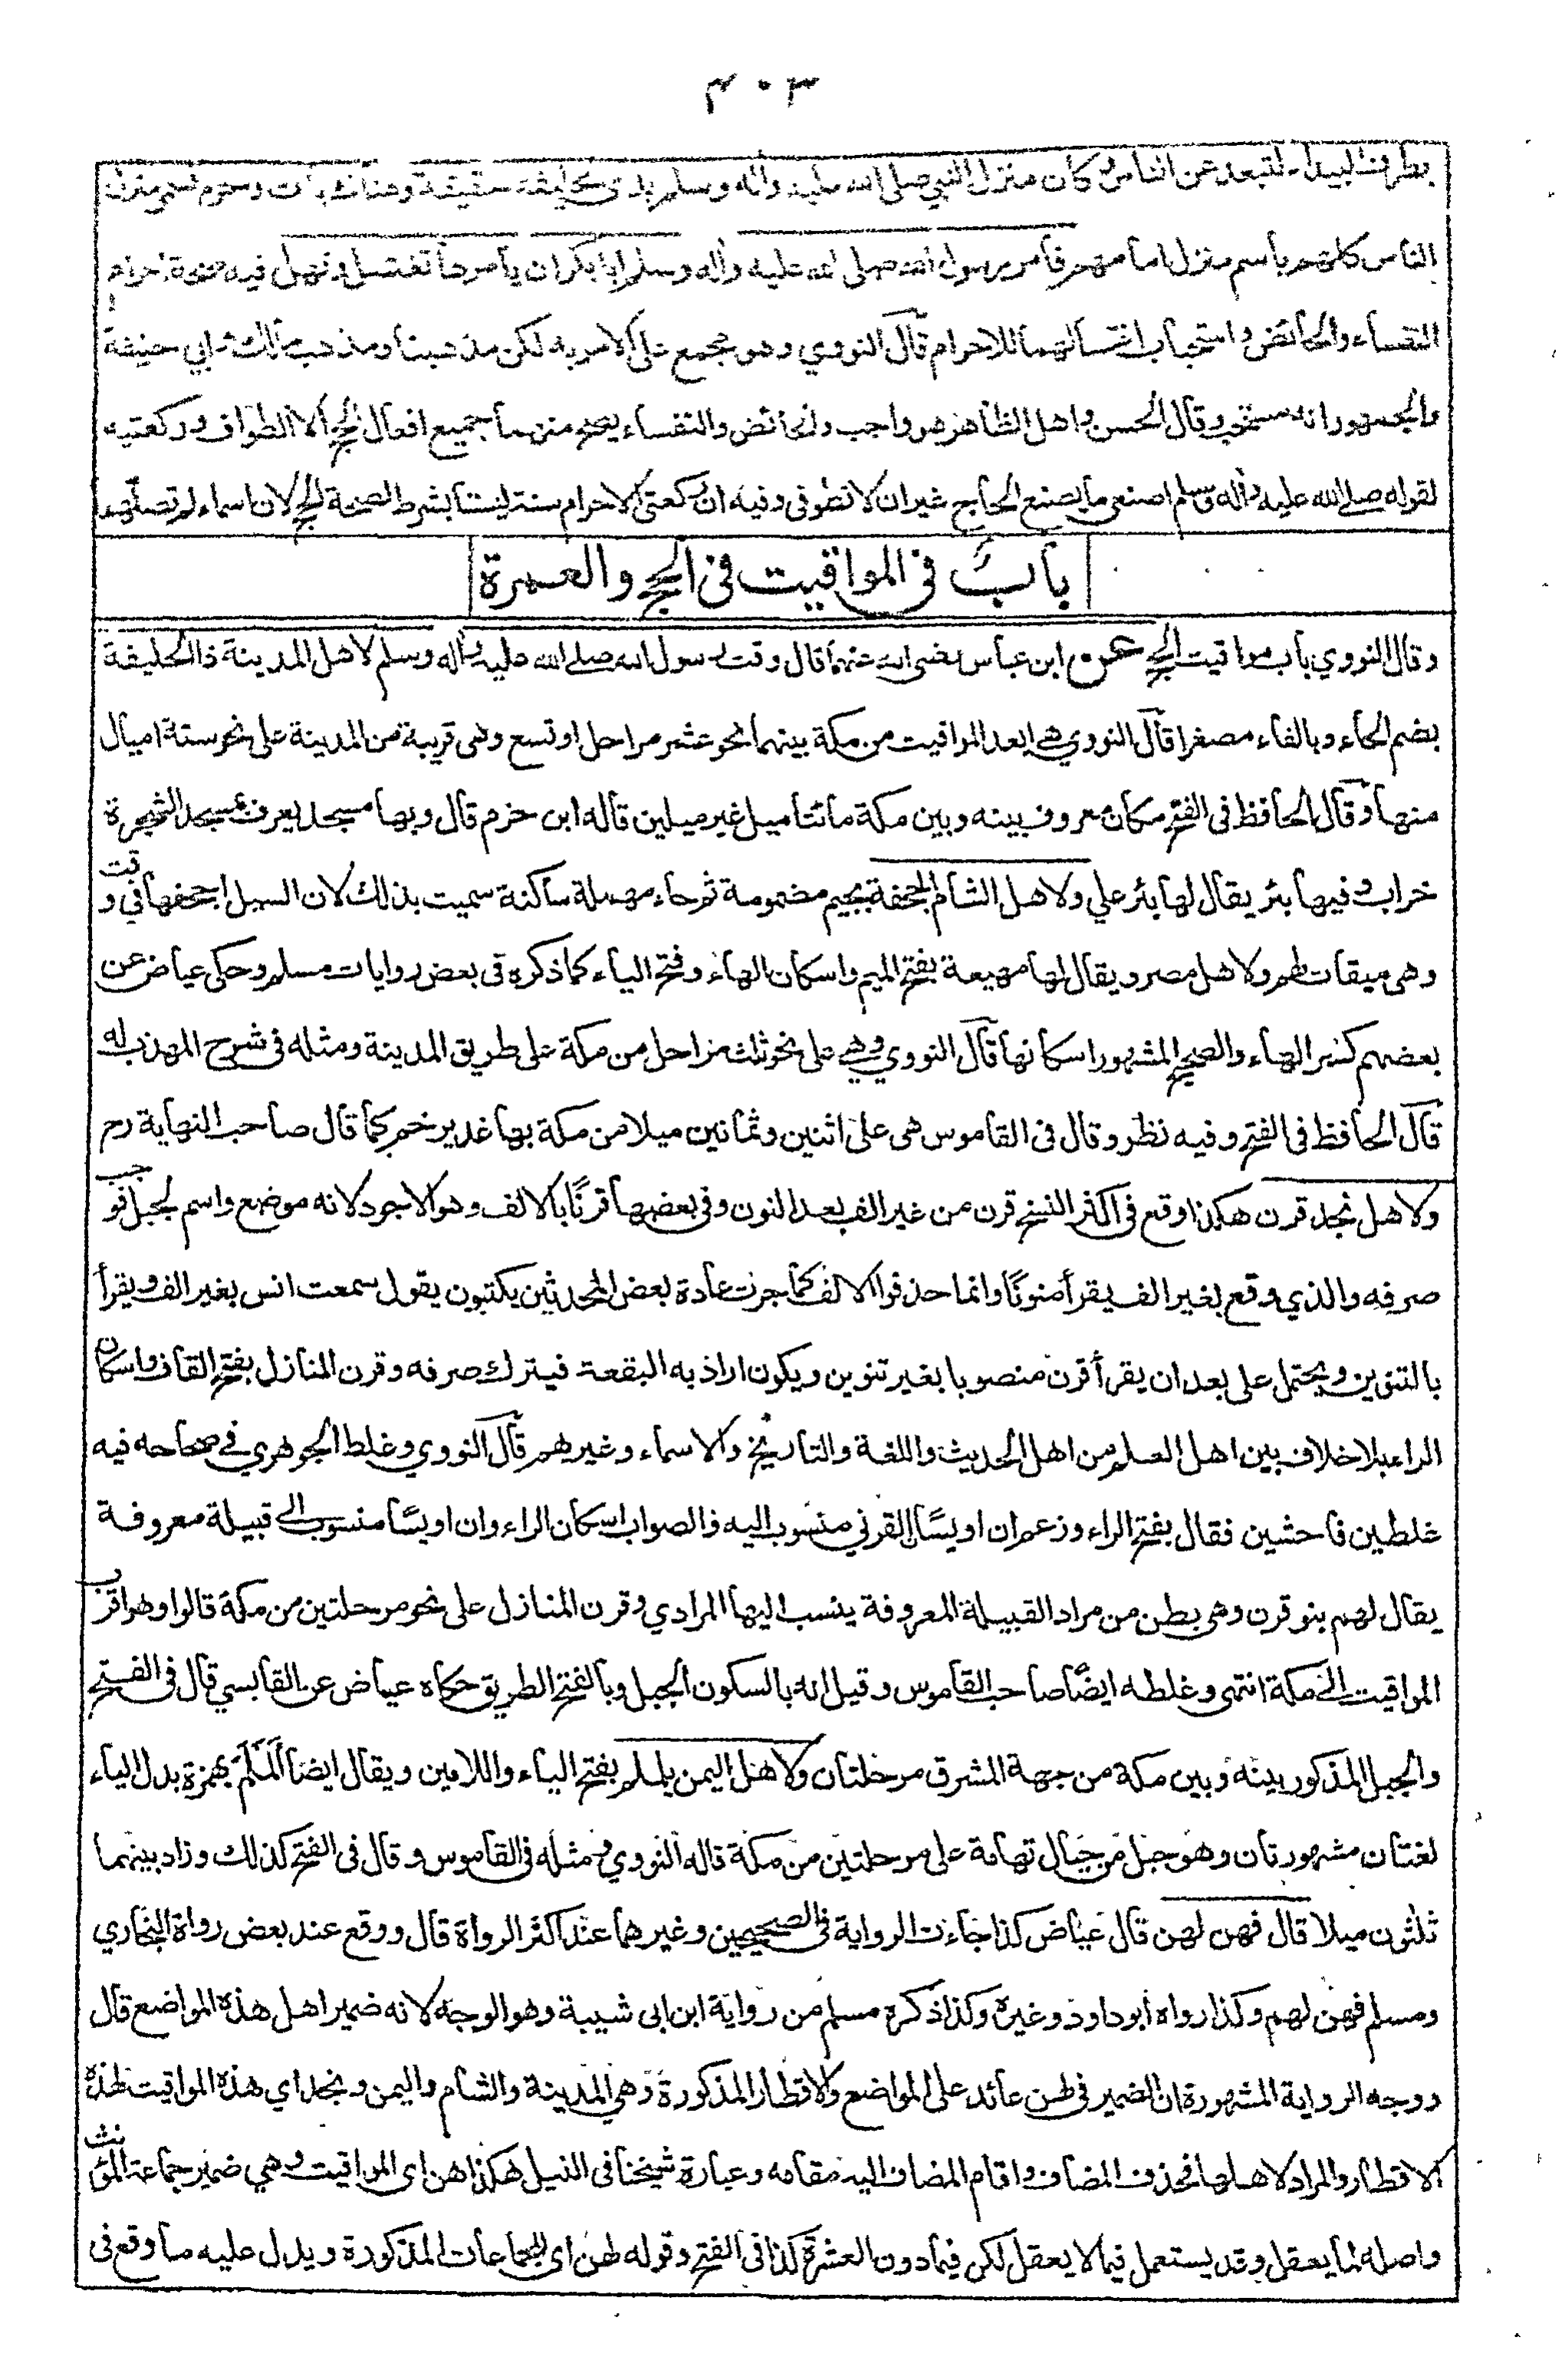 ٤٠٣
بطرف البيداء لتبعد عن الناس وكان منزل النبي صلى الله عليه وآله وسلم بذى الحليفة حقيقة وهناك بات واحرم فسمى منزل
الناس كلهم باسم منزل امامهم فأمر رسول الله صلى الله عليه وآله وسلم ابا بكر ان يأمرها تغتسل وتهل فيه صحة احرام
النفساء والحائض واستحباب اغتسالهما للاحرام قال النووي وهو مجمع على الامر به لكن مذهبنا ومذهب مالك وابي حنيفة
والجمهور انه مستحب وقال الحسن واهل الظاهر هو واجب والحائض والنفساء يصح منهما جميع افعال الحج الا الطواف وركعتيه
لقوله صلى الله عليه وآله وسلم اصنعي ما يصنع الحاج غير ان لا تطوفى وفيه ان ركعتى الاحرام سنة ليستا بشرط لصحة الحج لان اسماء لم تصلهما
باب في المواقيت فى الحج والعمرة
وقال النووي باب مواقيت الحج عن ابن عباس رضى الله عنهما قال وقت رسول الله صلى الله عليه وآله وسلم لاهل المدينة ذا الحليفة
بضم الحاء وبالفاء مصغرا قال النووي هى ابعد المواقيت من مكة بينهما نحو عشر مراحل او تسع وهى قريبة من المدينة على نحو ستة اميال
منها وقال الحافظ فى الفتح مكان معروف بينه وبين مكة مائتا ميل غير ميلين قاله ابن حزم قال وبها مسجد يعرف بمسجد الشجرة
خراب وفيها بئر يقال لها بئر علي ولاهل الشام الجحفة بجيم مضمومة ثم حاء مهملة ساكنة سميت بذلك لان السيل اجحفها في وقت
وهى ميقات لهم ولاهل مصر ويقال لها مهيعة بفتح الميم واسكان الهاء وفتح الياء كما ذكره فى بعض روايات مسلم وحكى عياض عن
بعضهم كسر الهاء والصحيح المشهور اسكانها قال النووي وهي على نحو ثلث مراحل من مكة على طريق المدينة ومثله فى شرح المهذب له
قال الحافظ فى الفتح وفيه نظر وقال فى القاموس هى على اثنين وثمانين ميلا من مكة بها غدير خم كما قال صاحب النهاية رح
ولاهل نجد قرن هكذا وقع فى اكثر النسخ قرن من غير الف بعد النون وفى بعضها قرنًا بالالف وهو الاجود لانه موضع واسم لجبل فوجب
صرفه والذي وقع بغير الف يقرأ منونًا وانما حذفوا الالف كما جرت عادة بعض المحدثين يكتبون يقول سمعت انس بغير الف ويقرأ
بالتنوين ويحتمل على بعد ان يقرأ قرن منصوبا بغير تنوين ويكون اراد به البقعة فيترك صرفه وقرن المنازل بفتح القاف واسكان
الراء بلا خلاف بين اهل العلم من اهل الحديث واللغة والتاريخ والاسماء وغيرهم قال النووي وغلط الجوهري في صحاحه فيه
غلطين فاحشين فقال بفتح الراء وزعم ان اويسًا القرني منسوب اليه فالصواب اسكان الراء وان اويسًا منسوب الى قبيلة معروفة
يقال لهم بنو قرن وهى بطن من مراد القبيلة المعروفة ينسب اليها المرادي وقرن المنازل على نحو مرحلتين من مكة قالوا وهو اقرب
المواقيت الى مكة انتهى وغلطه ايضًا صاحب القاموس وقيل انه بالسكون الجبل وبالفتح الطريق حكاه عياض عن القابسي قال فى الفتح
والجبل المذكور بينه وبين مكة من جهة المشرق مرحلتان ولاهل اليمن يلملم بفتح الياء واللامين ويقال ايضا اَلَمْلَمَ بهمزة بدل الياء
لغتان مشهورتان وهو جبل من جبال تهامة على مرحلتين من مكة قاله النووي ومثله فى القاموس وقال فى الفتح كذلك وزاد بينهما
ثلثون ميلا قال فهن لهن قال عياض كذا جاءت الرواية فى الصحيحين وغيرهما عند اكثر الرواة قال ووقع عند بعض رواة البخاري
ومسلم فهن لهم وكذا رواه أبو داود وغيره وكذا ذكره مسلم من رواية ابن ابى شيبة وهو الوجه لانه ضمير اهل هذه المواضع قال
ووجه الرواية المشهورة ان الضمير فى لهن عائد على المواضع والاقطار المذكورة وهي المدينة والشام واليمن ونجد اي هذه المواقيت لهذه
الاقطار والمراد لاهلها فحذف المضاف واقام المضاف اليه مقامه وعبارة شيخنا فى النيل هكذا هن اى المواقيت وهي ضمير جماعة المؤنث
واصله لما يعقل وقد يستعمل فيما لا يعقل لكن فيما دون العشرة كذا فى الفتح وقوله لهن اى للجماعات المذكورة ويدل عليه ما وقع فى